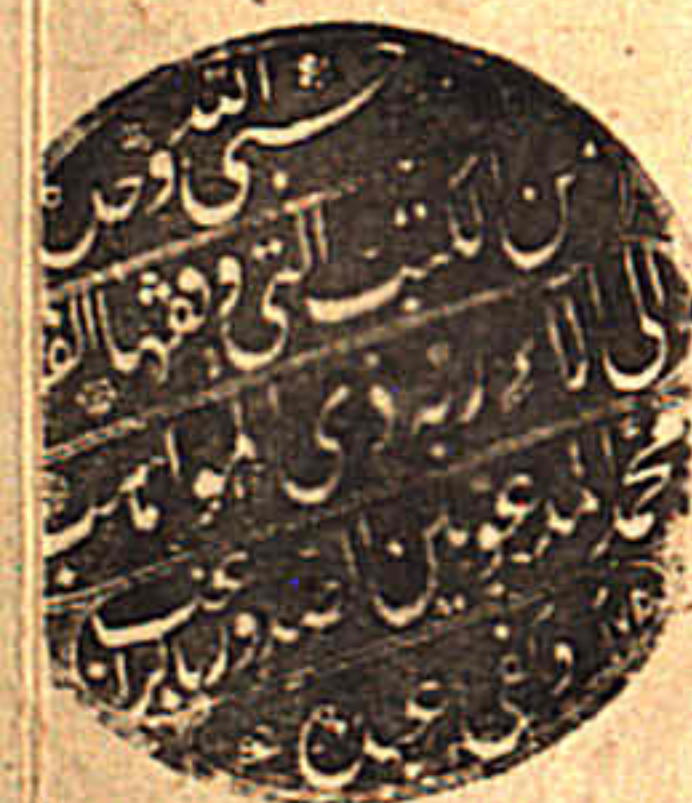 حسبى الله وحد
من الكتب التى وقفها الفقـ
الى آلاء ربه ذى المواهب
محمد المدعو بين الصدور بالراغب
وكفى عبده